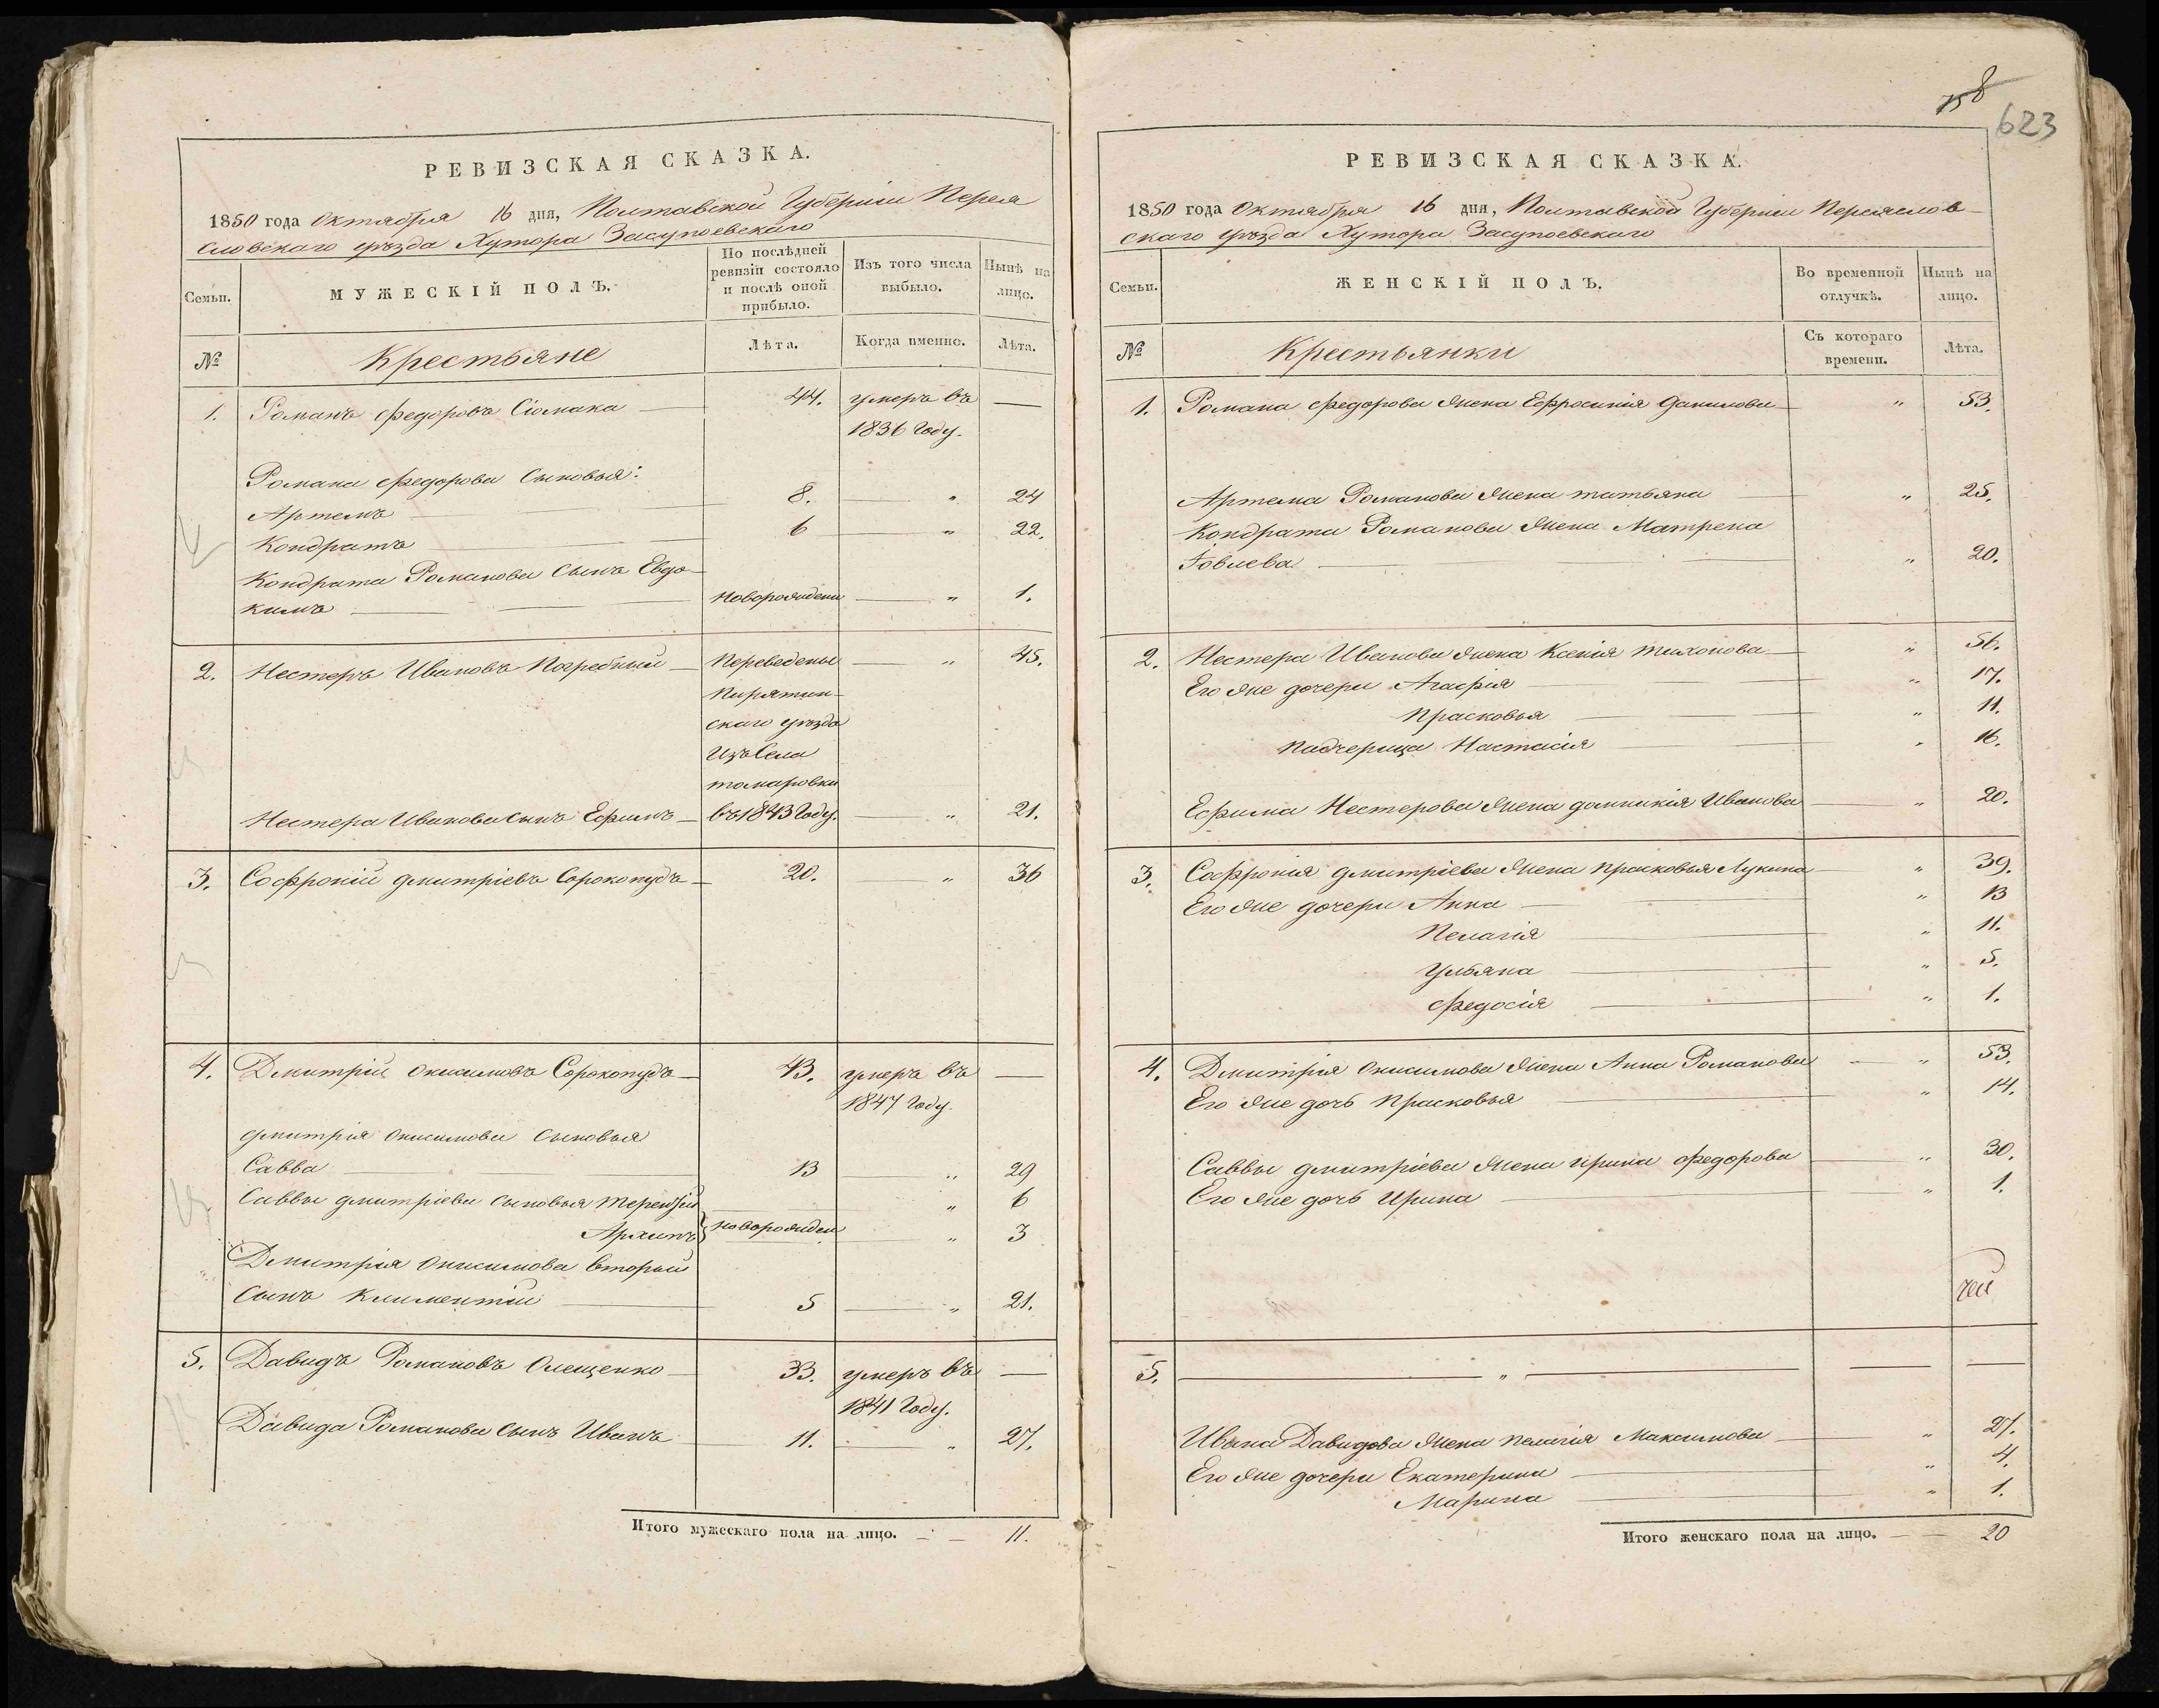 РЕВИЗСКАЯ СКАЗКА.
1850 года Октября 16 дня, Полтавской Губернiи Перея
словскаго уѣзда Хутора Засупоевскаго
Семьи.
МУЖЕСКIЙ ПОЛЪ.
По послѣдней
ревизiи состояло
и послѣ оной
прибыло.
Изъ того числа
выбыло.
Нынѣ на
лицо.
№
Крестьяне
Лѣта.
Когда именно.
Лѣта.
1. Романъ Федоровъ Сiомака 44. умеръ въ —
1836 году.
Романа Федорова Сыновья:
Артемъ 8. — " 24
Кондратъ 6 — " 22.
Кондрата Романова Сынъ Евдо-
кимъ новорожденн — " 1.
2. Нестеръ Ивановъ Погребный — Переведены — " 45.
Пирятин-
скаго уѣзда
Изъ Села
томаровки
Нестера Иванова Сынъ Ефимъ — въ 1843 году. — " 21.
3. Софронiй Дмитрiевъ Сорокопудъ — 20. — " 36
4. Дмитрiй Онисимовъ Сорокопудъ — 43. умеръ въ —
1847 году.
Дмитрiя Онисимова Сыновья
Савва 13 — " 29
Саввы Дмитрiева Сыновья Терентiй " 6
Архипъ } новорожден — " 3
Дмитрiя Онисимова Вторый
Сынъ Климентiй — 5 — " 21.
5. Давидъ Романовъ Олещенко — 33. умеръ въ —
1841 году.
Давида Романова Сынъ Иванъ — 11. — " 27.
Итого мужескаго пола на лицо. — 11.
158
623
РЕВИЗСКАЯ СКАЗКА.
1850 года Октября 16 дня, Полтавской Губернiи Переяслов-
скаго уѣзда Хутора Засупоевскаго
Семьи.
ЖЕНСКIЙ ПОЛЪ.
Во временной
отлучкѣ.
Нынѣ на
лицо.
№
Крестьянки
Съ котораго
времени.
Лѣта.
1. Романа Федорова Жена Ефросинiя Данилова — " 53.
Артема Романова Жена татьяна — " 25.
Кондрата Романова Жена Матрена
Iовлева — " 20.
2. Нестера Иванова Жена Ксенiя тихонова — " 56.
Его же дочери Агафiя — " 17.
Прасковья — " 11.
Падчерица Настасiя — " 16.
Ефима Нестерова Жена домникiя Иванова — " 20.
3. Софронiя Дмитрiева Жена Прасковья Лукина — " 39.
Его же дочери Анна — " 13
Пелагiя — " 11.
Ульяна — " 5.
Федосiя — " 1.
4. Дмитрiя Онисимова Жена Анна Романова — " 53.
Его же дочь Прасковья — " 14.
Саввы Дмитрiева Жена Ирина Федорова — " 30.
Его же дочь Ирина — " 1.
5. — " — — —
Ивана Давидова Жена Пелагiя Максимова — " 27.
Его же дочери Екатерина — " 4.
Марина — " 1.
Итого женскаго пола на лицо. — 20